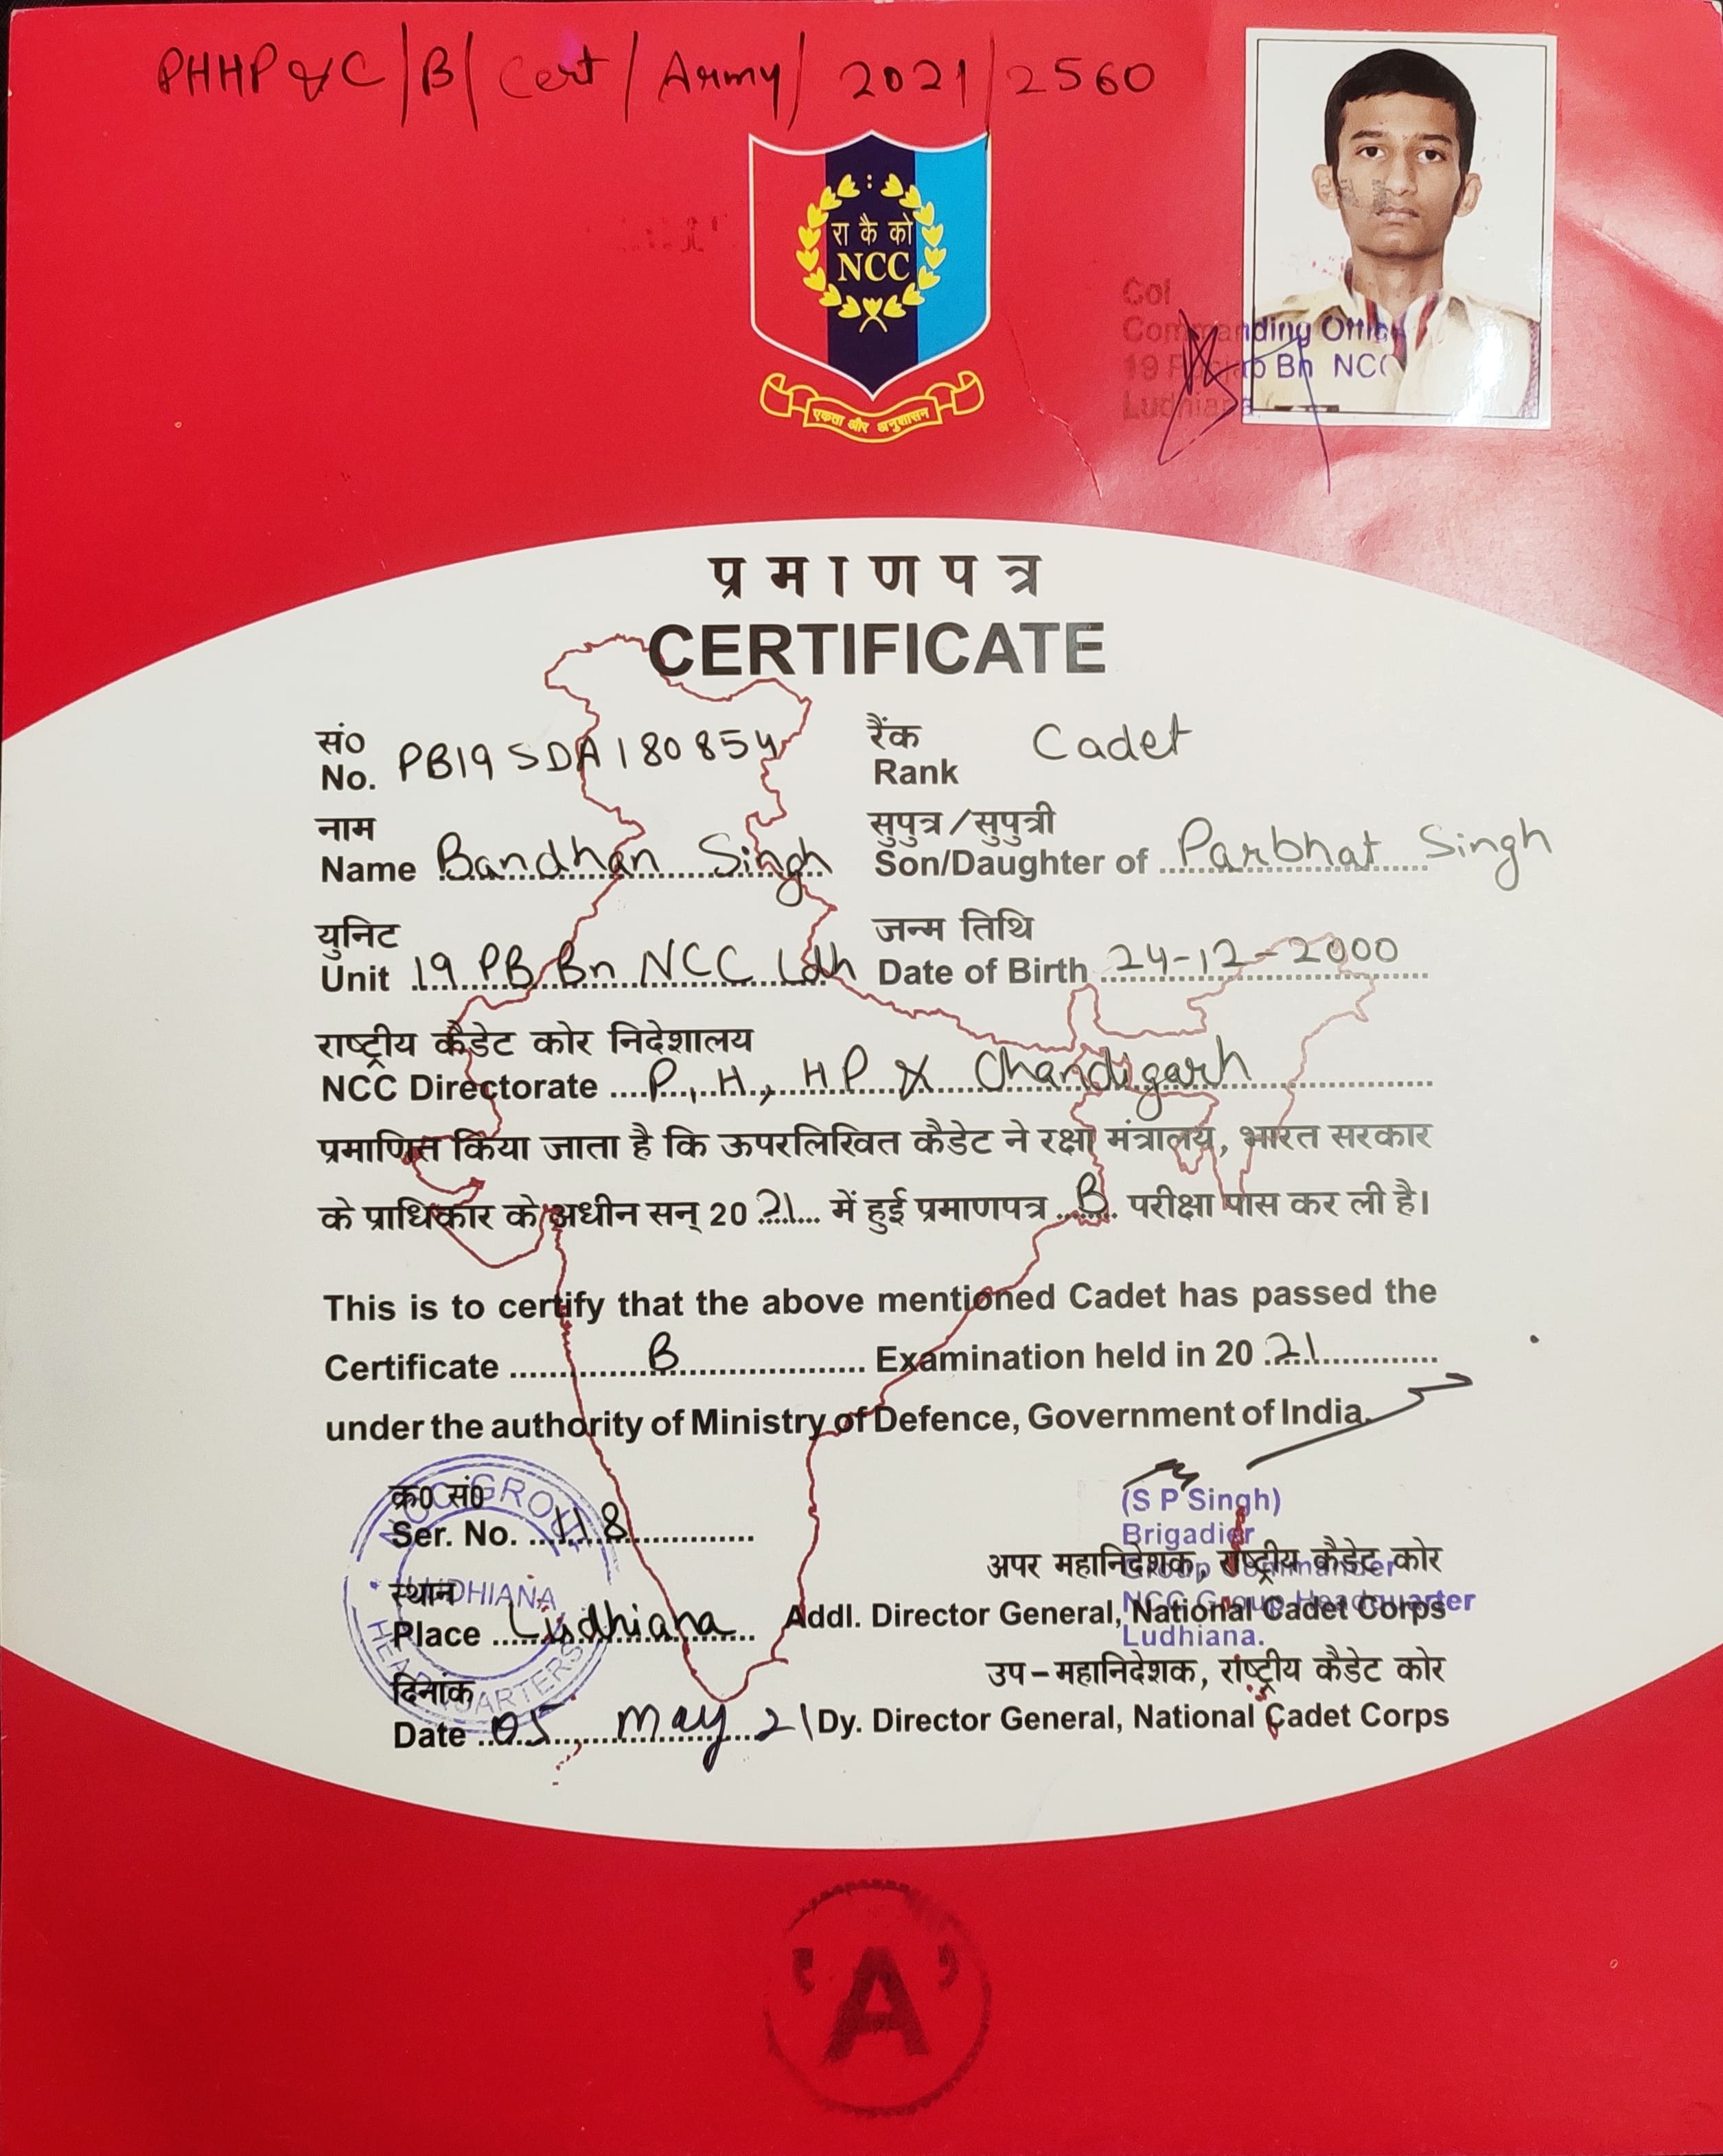 PHHP & C/B/Cert/Army/2021/2560
रा कै को
NCC
एकता और अनुशासन
Col
Commanding Office
19 Punjab Bn NCC
Ludhiana
प्रमाणपत्र
CERTIFICATE
सं० रैंक
No. PB19SDA180854 Rank Cadet
नाम सुपुत्र/सुपुत्री
Name Bandhan Singh Son/Daughter of Parbhat Singh
युनिट जन्म तिथि
Unit 19 PB Bn NCC Ldh Date of Birth 24-12-2000
राष्ट्रीय कैडेट कोर निदेशालय
NCC Directorate P, H, HP & Chandigarh
प्रमाणित किया जाता है कि ऊपरलिखित कैडेट ने रक्षा मंत्रालय, भारत सरकार
के प्राधिकार के अधीन सन् 2021 में हुई प्रमाणपत्र B परीक्षा पास कर ली है।
This is to certify that the above mentioned Cadet has passed the
Certificate B Examination held in 2021
under the authority of Ministry of Defence, Government of India.
NCC GROUP
LUDHIANA
HEADQUARTERS
क्र० सं०
Ser. No. 118
स्थान
Place Ludhiana
दिनांक
Date 05 May 21
(S P Singh)
Brigadier
Group Commander
NCC Group Headquarter
Ludhiana.
अपर महानिदेशक, राष्ट्रीय कैडेट कोर
Addl. Director General, National Cadet Corps
उप-महानिदेशक, राष्ट्रीय कैडेट कोर
Dy. Director General, National Cadet Corps
'A'